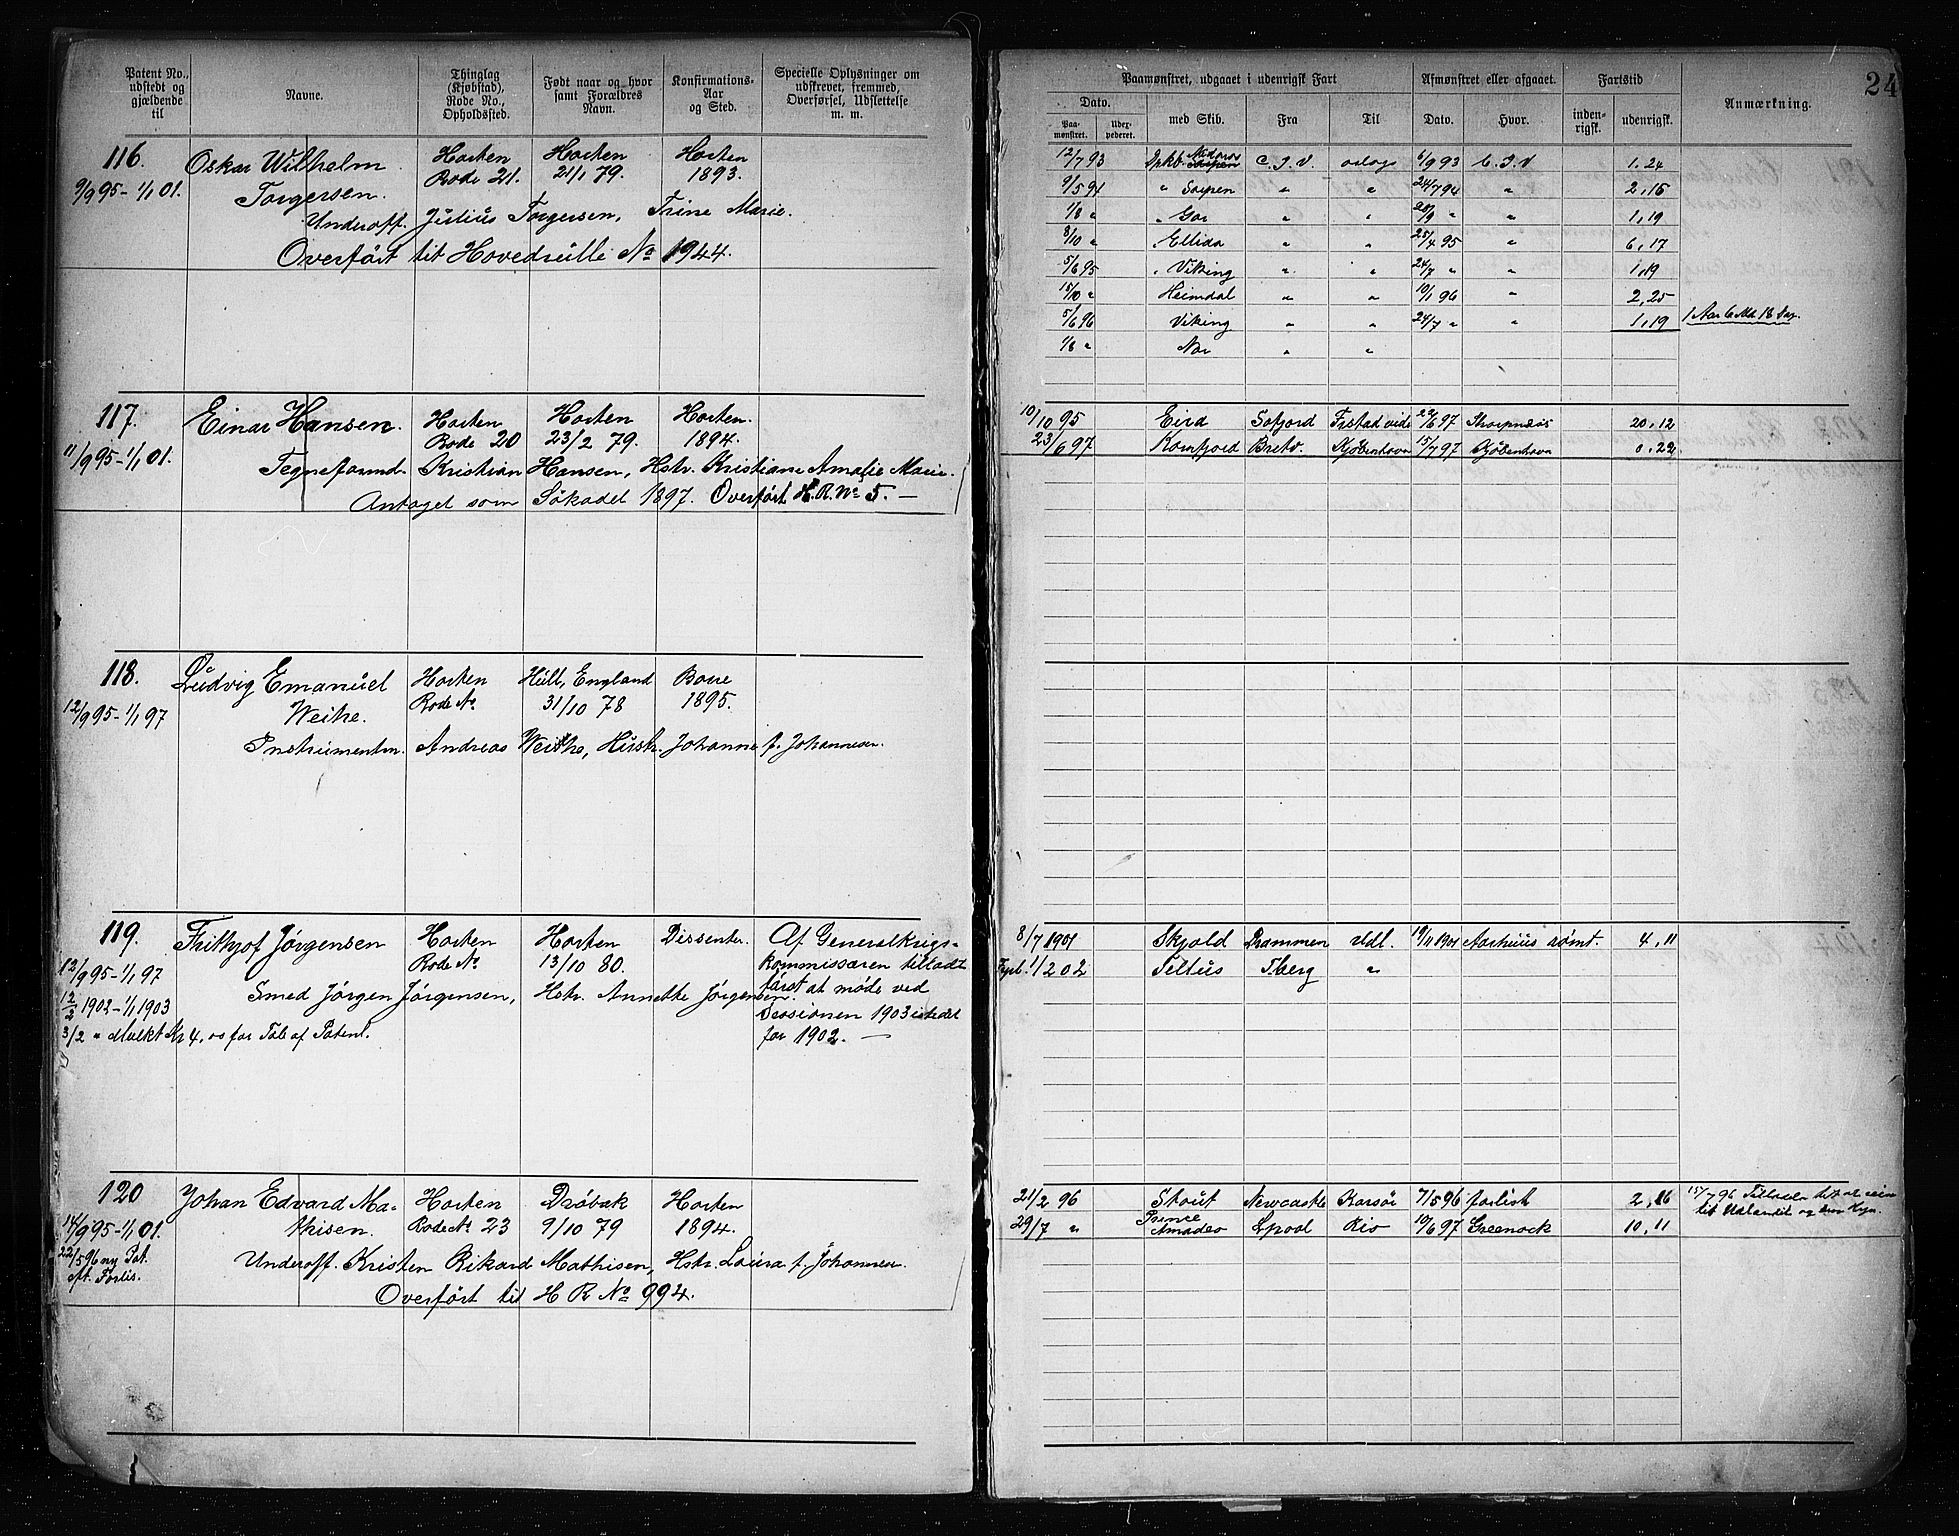 Patent No., udstedt og gjældende til
Navne.
Thinglag (Kjøbstad), Rode No., Opholdssted.
Født naar og hvor samt Forældres Navn.
Konfirmations-Aar og Sted.
Specielle Oplysninger om udskrevet, fremmed, Overførsel, Udslettelse m. m.
116.
9/9 95 - 1/1 01.
Oskar Wilhelm
Torgersen.
Horten
Rode 21.
Horten
21/1 79.
Horten
1893.
Underoff. Julius Torgersen, Trine Marie.
Overført til Hovedrulle No 1944.
117.
11/9 95 - 1/1 01.
Einar Hansen.
Horten
Rode 20
Horten
23/2 79.
Horten.
1894.
Tegneformd. Kristian Hansen, Hstr. Kristiane Amalie Marie.
Antaget som Søkadet 1897. Overført H.R. No 5. —
118.
12/9 95 - 1/1 97
Ludvig Emanuel
Weihe.
Horten
Rode No
Hull, England
31/10 78
Borre
1895.
Instrumentm. Andreas Weihe, Hustr. Johanne f. Johannesen.
119.
12/9 95 - 1/1 97
12/2 1902 - 1/1 1903
3/2 " Mulkt Kr 4,00 for Tab af Patent.
Frithjof Jørgensen
Horten
Rode No
Horten
13/10 80.
Dissenter.
Smed Jørgen Jørgensen, Hstr. Annette Jørgensen.
Af Generalkrigs-
kommissæren tilladt
først at møde ved
Sessionen 1903 istedet
for 1902. —
120
14/9 95 - 1/1 01.
22/5 96 ny Pat.
eft. Forlis.
Johan Edvard Ma-
thisen.
Horten
Rode No 23
Drøbak
9/10 79
Horten
1894.
Underoff. Kristen Rikard Mathisen, Hstr. Laura f. Johannesen.
Overført til H R No 994.
24
Paamønstret, udgaaet i udenrigsk Fart
Afmønstret eller afgaaet.
Fartstid
Anmærkning.
Dato.
Paa-mønstret.
med Skib.
Fra
Til
Dato.
Hvor.
inden-rigsk.
udenrigsk.
12/7 93 Dpkb. C. J. V. orlogs 6/9 93 C. J. V 1.24
9/5 94 " Sarpen " " 24/7 94 " 2,15
1/8 " " Gor " " 20/9 " " 1,19
8/10 " Ellida " " 25/4 95 " 6,17
5/6 95 " Viking " " 24/7 " " 1,19
15/10 " Heimdal " " 10/1 96 " 2,25
5/6 96 Viking " " 24/7 " " 1,19 1 Aar 6 Md 18 Dag.
1/8 " Nor " "
10/10 95 Eira 22/6 97 20,12
23/6 97 Kornfjord Kjøbenhavn 15/7 97 Kjøbenhavn 0,22
8/7 1901 Skjold Drammen Udl. 19/11 1901 Aarhuus rømt. 4,11
1/2 02 Tellus Tberg "
21/2 96 Stout Newcastle Korsør 7/5 96 forlist 2,16
29/7 " Prince Amadeo Lpool Rio 10/6 97 Greenock 10,11
15/7 96